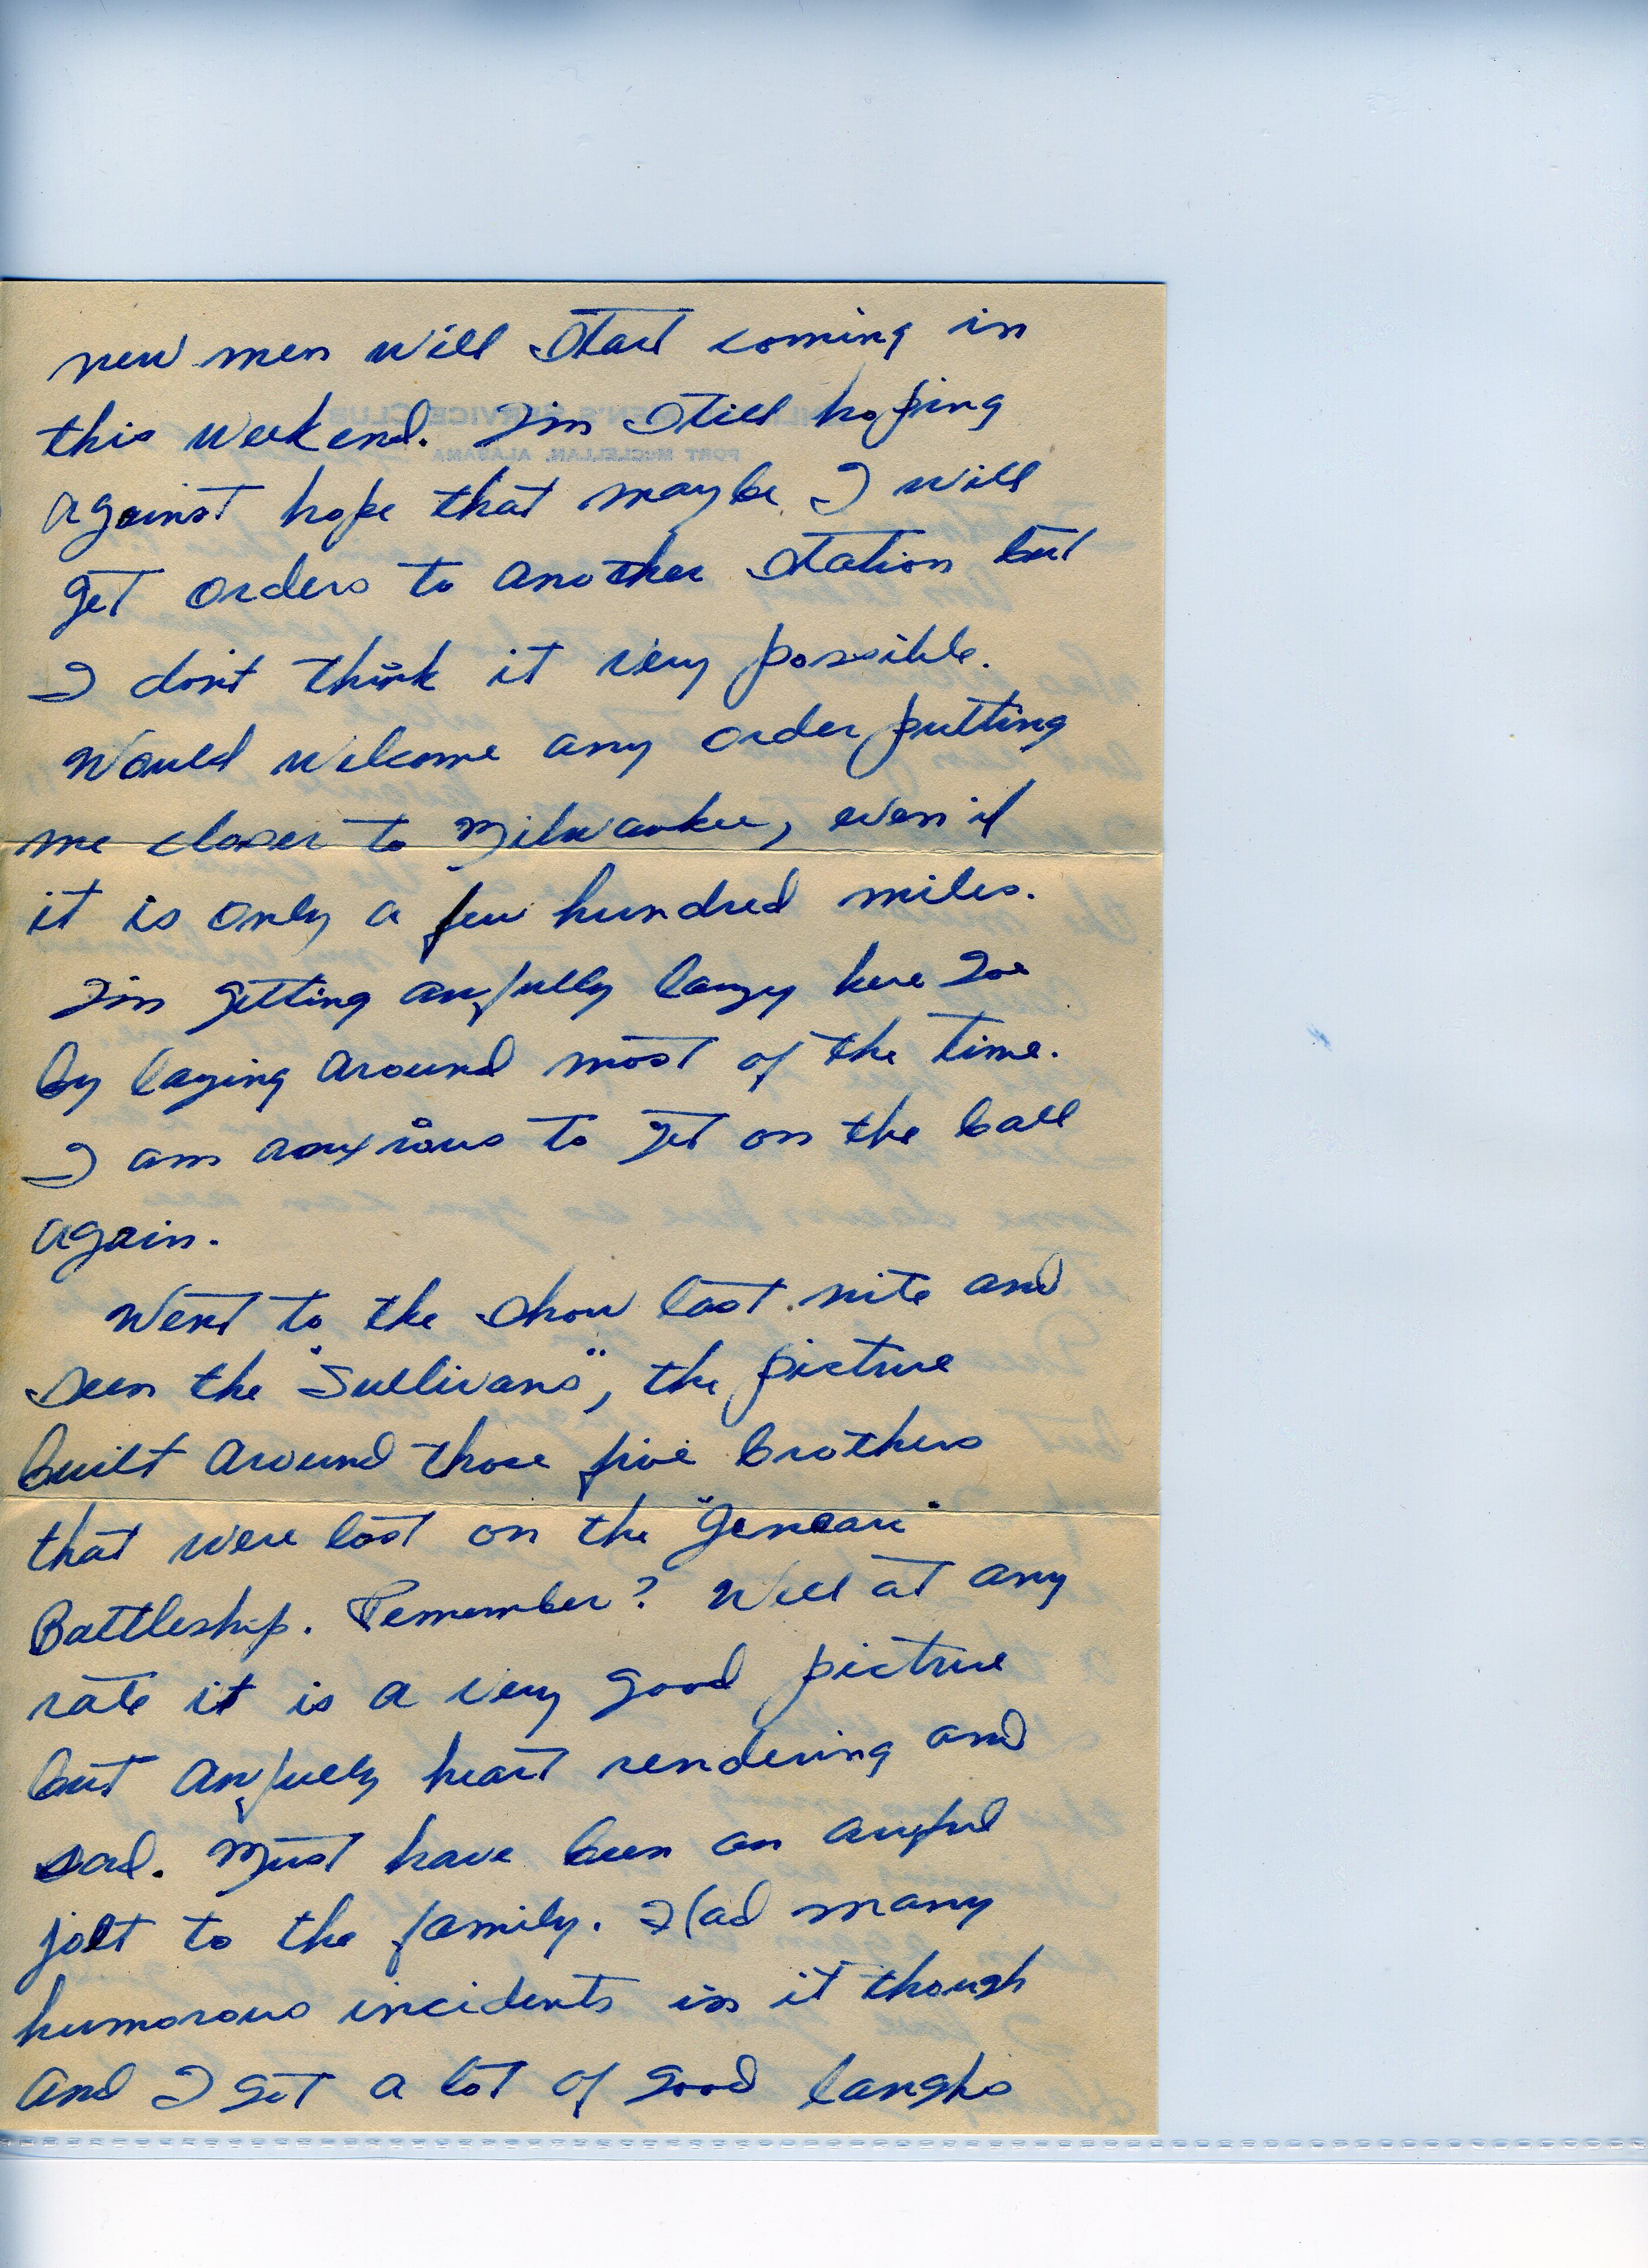 new men will start coming in
this weekend. I'm still hoping
against hope that maybe I will
get orders to another station but
I don't think it very possible.
Would welcome any order putting
me closer to Milwaukee, even if
it is only a few hundred miles.
I'm getting awfully lazy here Zoe
by laying around most of the time.
I am anxious to get on the ball
again.
Went to the show last nite and
seen the "Sullivans", the picture
built around those five brothers
that were lost on the "Juneau"
Battleship. Remember? Well at any
rate it is a very good picture
but awfully heart rendering and
sad. Must have been an awful
jolt to the family. Had many
humorous incidents in it though
and I got a lot of good laughs
SERVICE CLUB
FORT McCLELLAN, ALABAMA